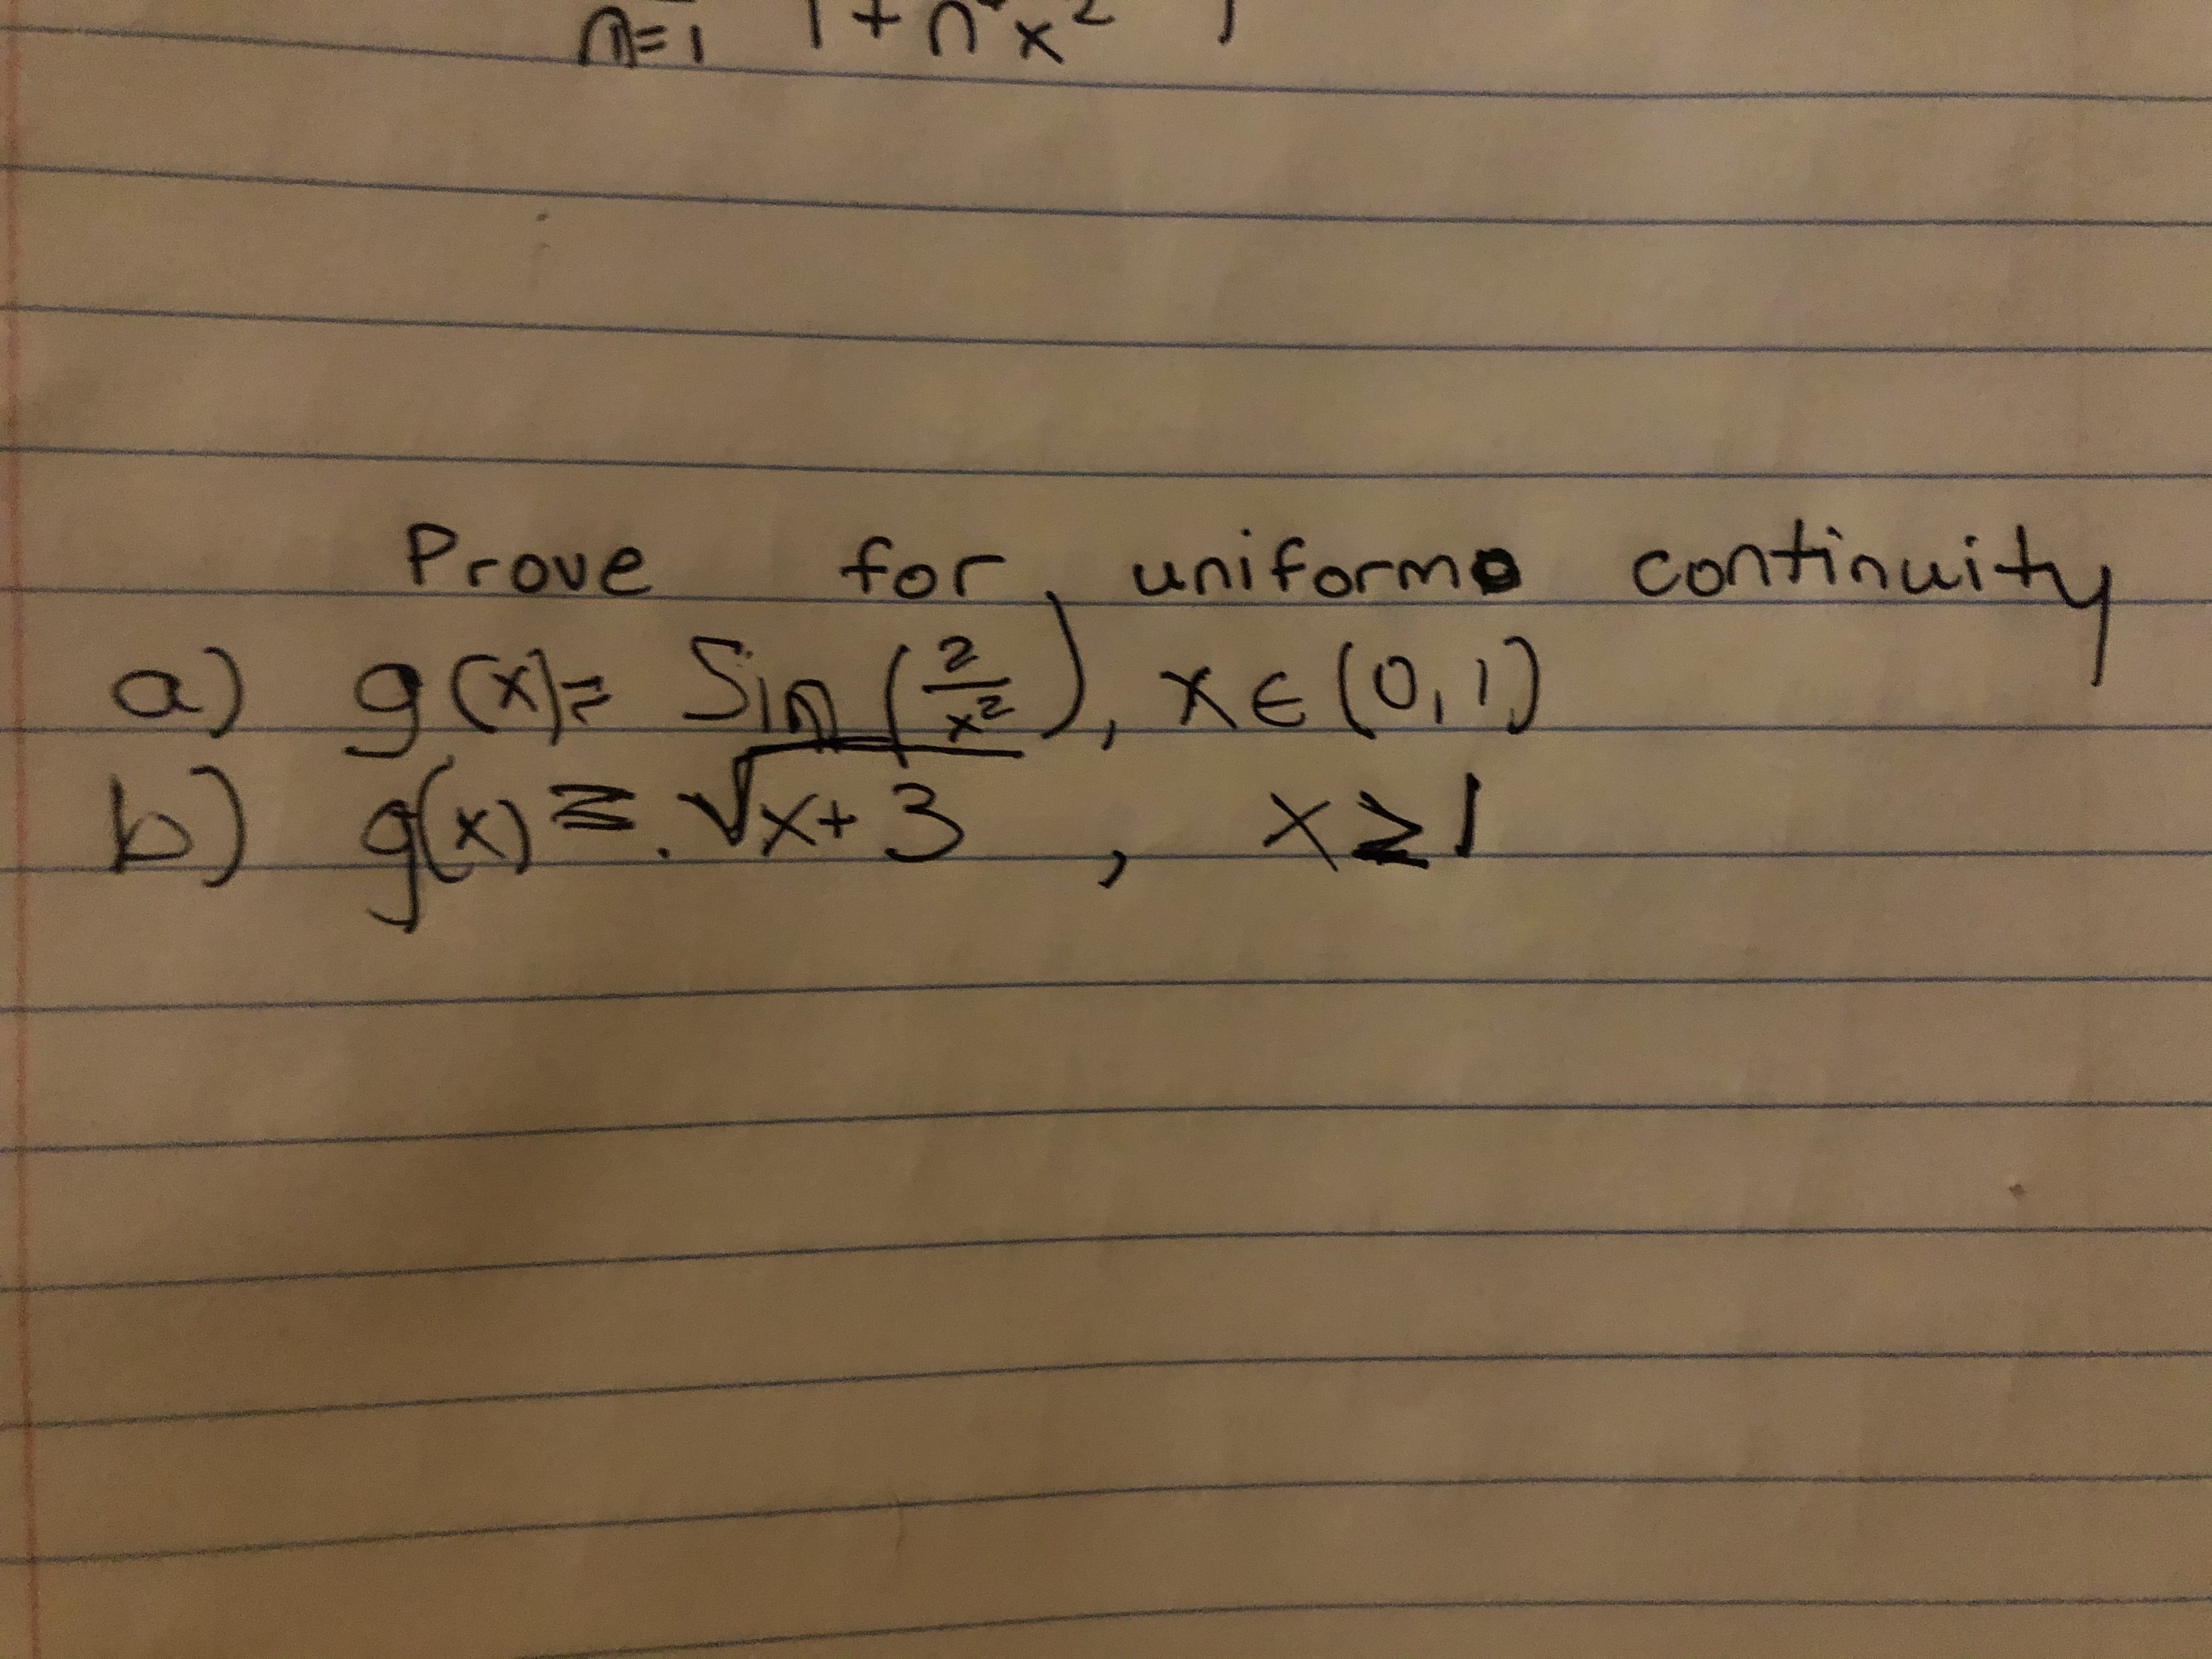 n=1 1 + n x²
Prove for uniform continuity
a) g(x)= Sin (2/x²), x ∈ (0,1)
b) g(x) = √x+3 , x ≥ 1